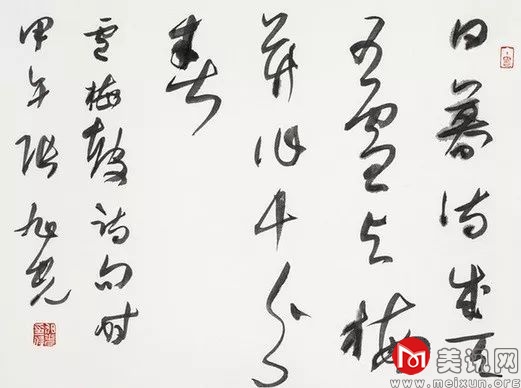 日暮诗成天
又雪与梅
并作十分
春
盧梅坡诗句时
甲午张旭光
美讯网
www.meixun.org